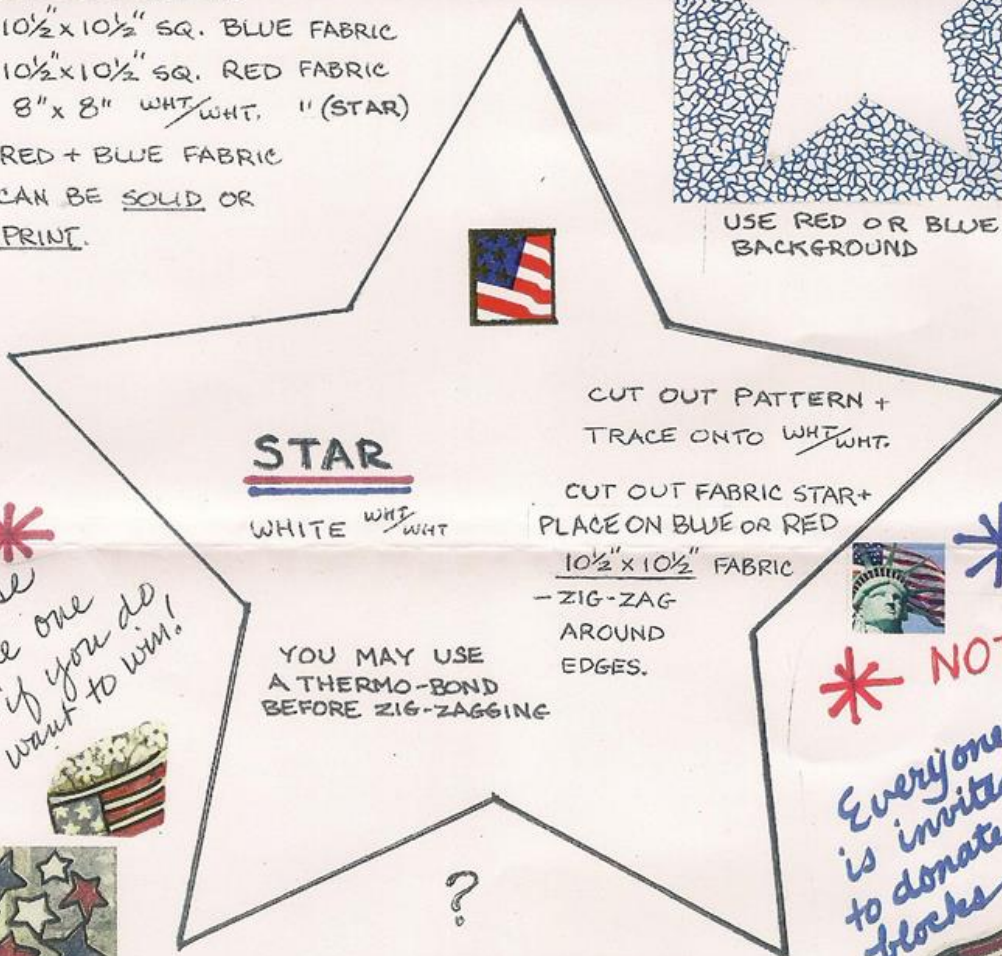 10½" x 10½" SQ. BLUE FABRIC
10½" x 10½" SQ. RED FABRIC
8" x 8" WHT/WHT. " (STAR)
RED + BLUE FABRIC
CAN BE SOLID OR
PRINT.
USE RED OR BLUE
BACKGROUND
CUT OUT PATTERN +
TRACE ONTO WHT/WHT.
STAR
WHITE WHT/WHT
CUT OUT FABRIC STAR +
PLACE ON BLUE OR RED
10½" x 10½" FABRIC
- ZIG-ZAG
AROUND
EDGES.
YOU MAY USE
A THERMO-BOND
BEFORE ZIG-ZAGGING
one
if you do
want to win!
* NOT
Everyone
is invite
to donate
blocks
?